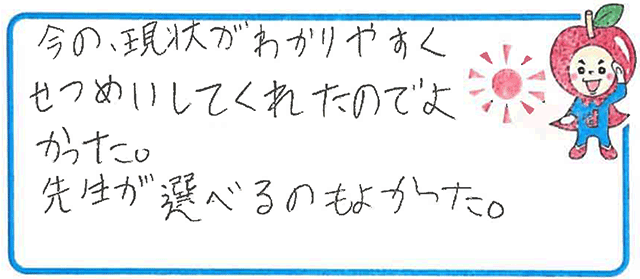 今の、現状がわかりやすく
せつめいしてくれたのでよ
かった。
先生が選べるのもよかった。